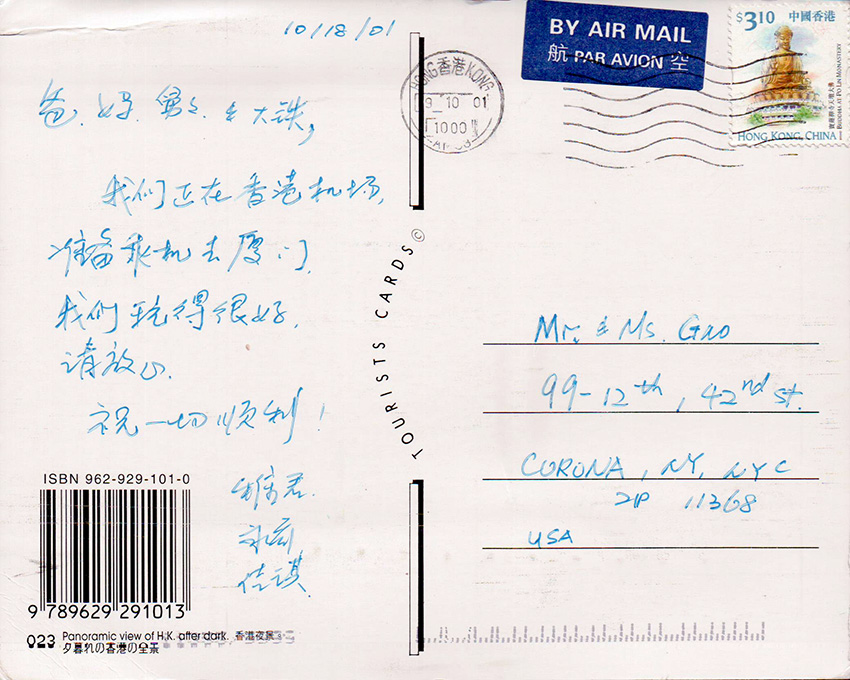 10/18/01
爸、妈、 大铁,
我们正在香港机场,
准备乘机去厦门.
我们玩得很好,
请放心.
祝一切顺利!
佳琪
ISBN 962-929-101-0
9 789629 291013
023 Panoramic view of H.K. after dark. 香港夜景
夕暮れの香港の全景
TOURISTS CARDS©
HONG 香港 KONG
9 10 01
1000
BY AIR MAIL
航 PAR AVION 空
$3.10 中國香港
寶蓮禪寺天壇大佛
BUDDHA AT PO LIN MONASTERY
HONG KONG, CHINA
Mr. & Ms. Gao
99-12th, 42nd St.
CORONA, NY, NYC
ZIP 11368
USA